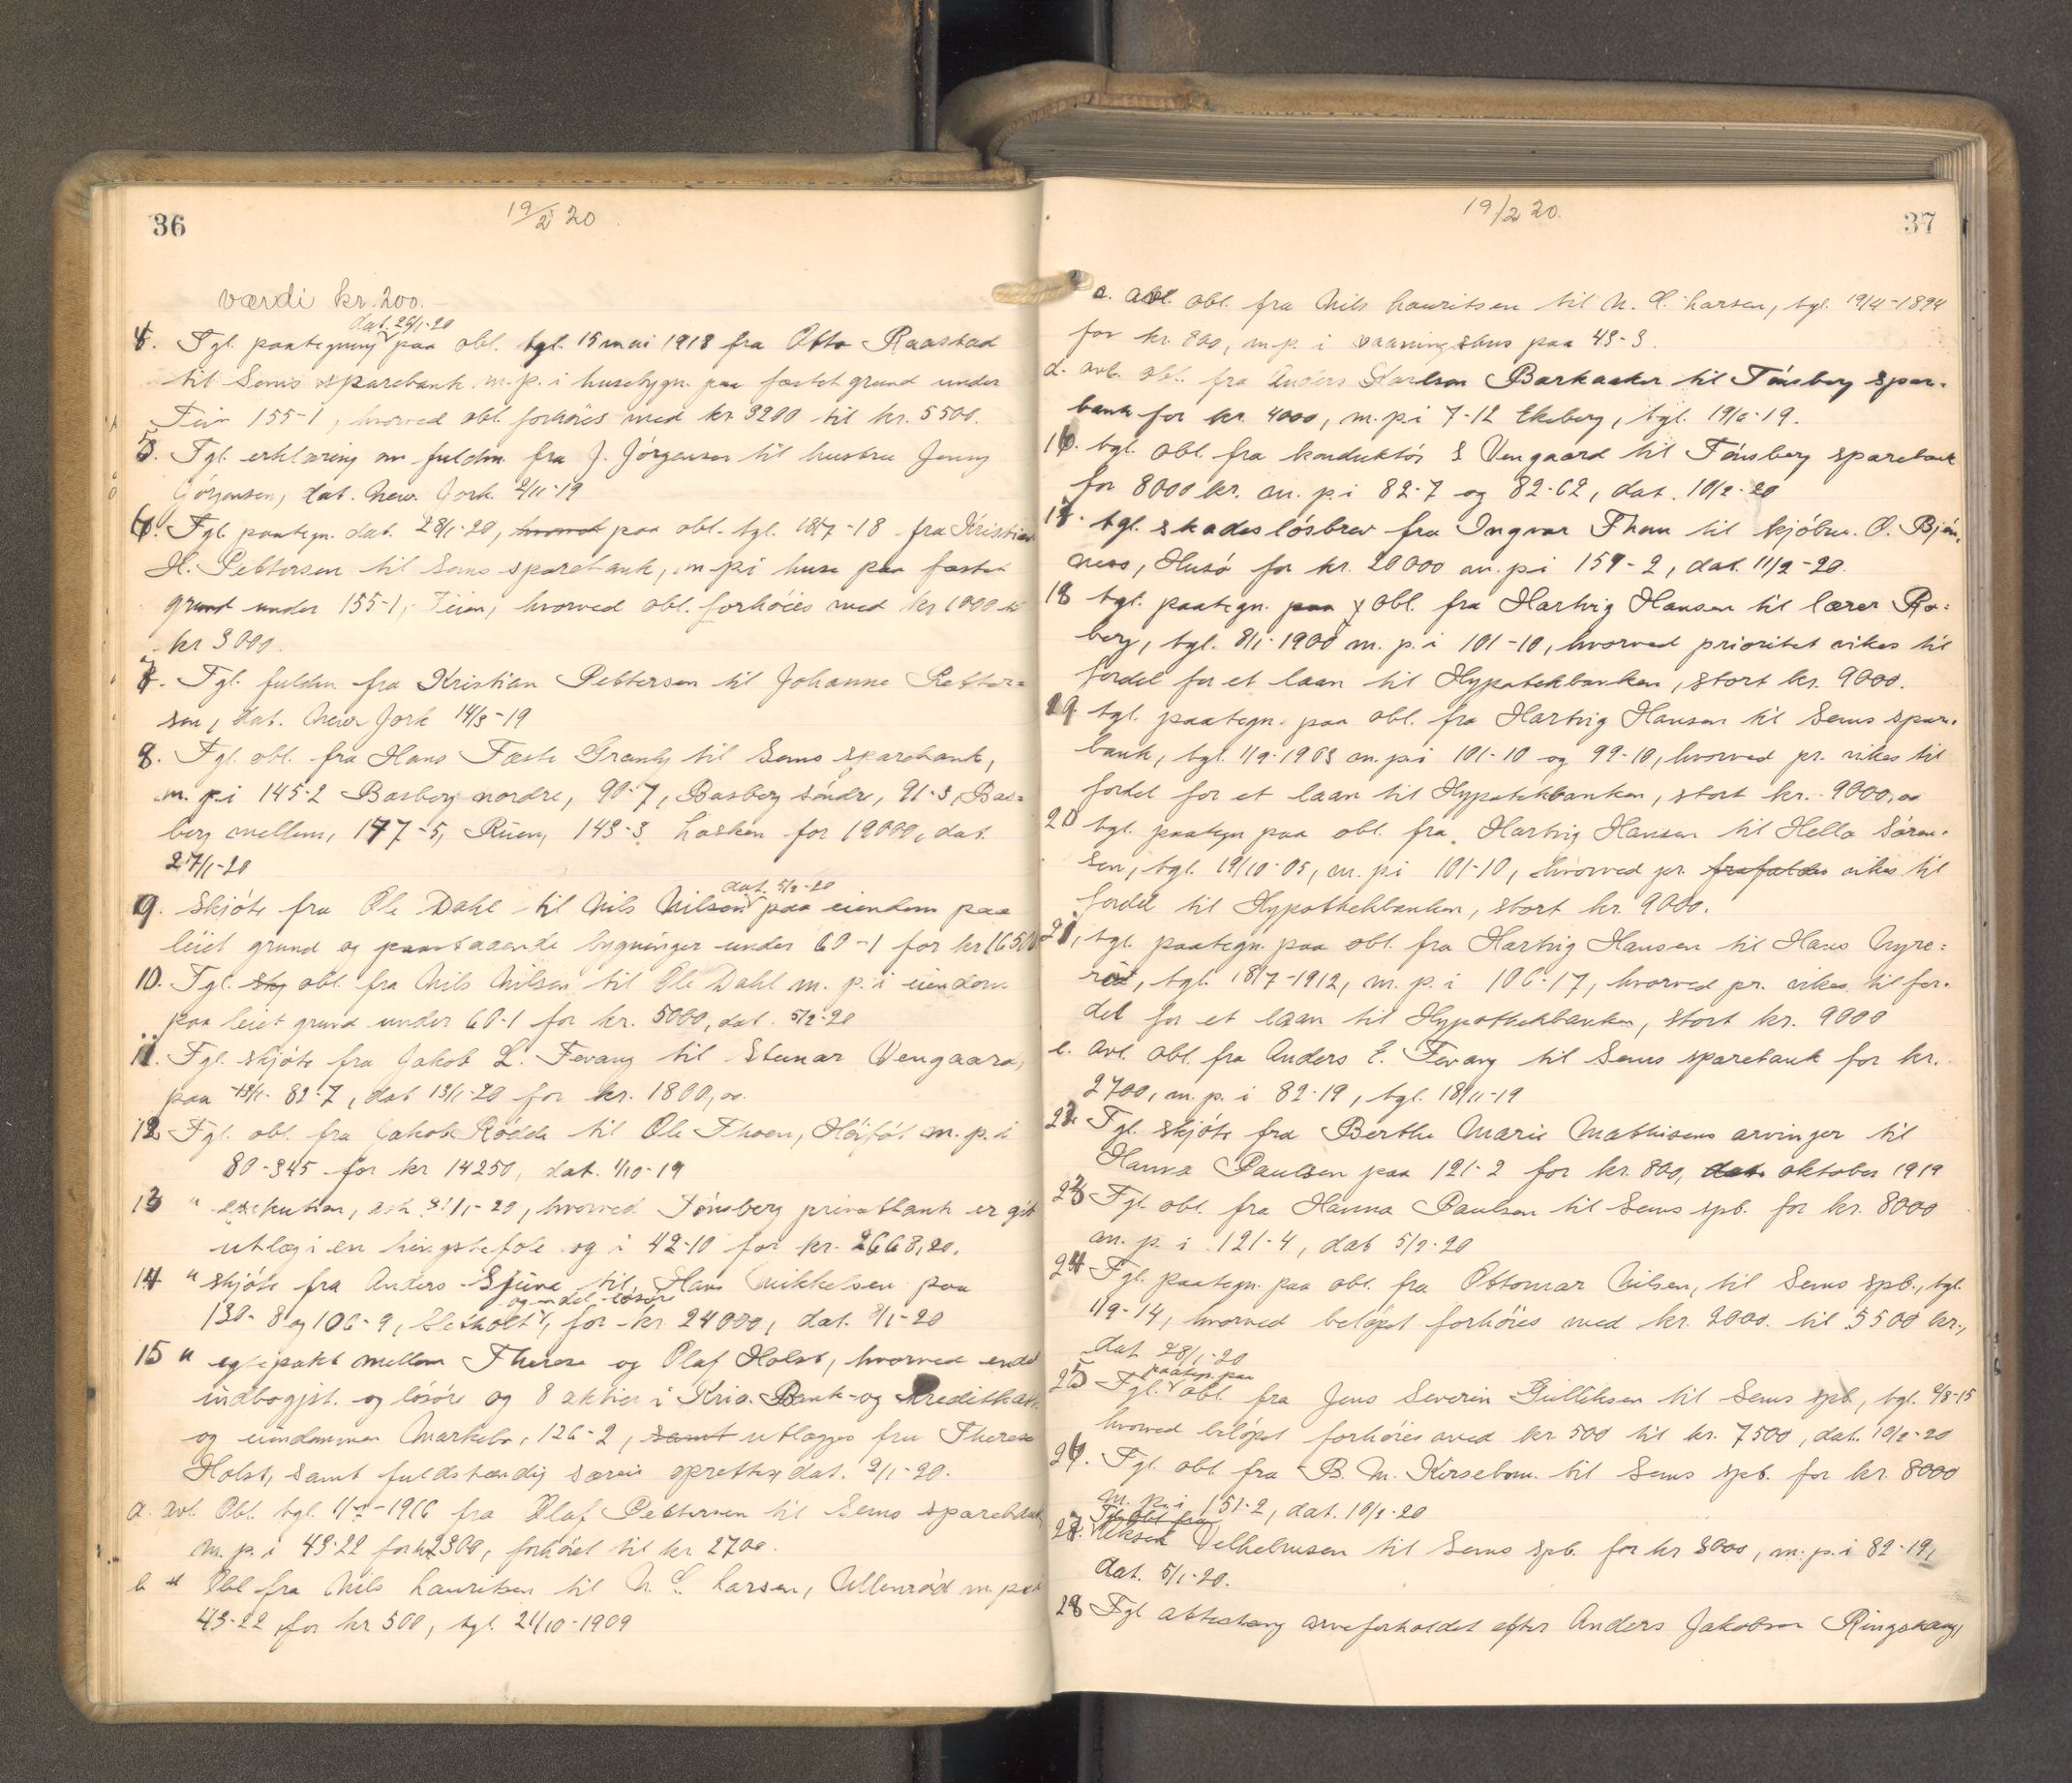 36
19/2 20
værdi kr. 200.
dat. 26/1-20
4. Tgl. paategning paa obl. tgl. 15 mai 1918 fra Otto Raastad
til Sems sparebank m.p. i husebygn. paa fæstet grund under
Teie 155-1, hvorved obl. forhöies med kr 3200 til kr. 5500.
5. Tgl. erklæring om fuldm. fra J. Jörgensen til hustru Jenny
Jörgensen, dat. New York 2/11-19
6. Tgl. paategn. dat. 28/1-20, paa obl. tgl. 18/7-18 fra Kristian
H. Pettersen til Sems sparebank, m.p.i huse paa fæstet
grund under 155-1, Teien, hvorved obl. forhöies med kr 1000 til
kr 3000.
7. Tgl. fuldm. fra Kristian Pettersen til Johanne Petter-
sen, dat. New York 14/3-19
8. Tgl. obl. fra Hans Fæste Granly til Sems sparebank,
m. p.i 145-2 Basberg nordre, 90-7, Basberg söndr, 91-3, Bas-
berg mellem, 177-5, Rüen, 143-3 Lasken for 12000, dat.
27/1-20
dat. 5/2-20
9. Skjöte fra Ole Dahl til Nils Nilsen paa eiendom paa
leiet grund og paastaaende bygninger under 60-1 for kr 16500
10. Tgl. obl. fra Nils Nilsen til Ole Dahl m. p. i eiendom
paa leiet grund under 60-1 for kr. 5000, dat. 5/2-20
11. Tgl. skjöte fra Jakob L. Fevang til Steinar Vengaard,
paa 82-7, dat 13/1-20 for kr. 1800,00.
12 Tgl. obl. fra Jakob Rödde til Ole Thoen, m. p. i
80-345 for kr 14250, dat. 1/10-19
13 " exekution, , hvorved Tönsberg privatbank er git
utlæg i en hingstefole og i 42-10 for kr. 2668,20.
14 " skjöte fra Anders til Hans Mikkelsen paa
og endel lösöre
130-8 og 106-9, for kr 24000, dat. 8/1-20
15 " egtepakt mellem Therese og Olaf Holst, hvorved endel
indbogjst. og lösöre og 8 aktier i Kria. Bank- og Kreditkas.
og eiendommen Markebo, 126-2, samt utlægges fru Therese
Holst, samt fuldstændig særeie oprettes, dat. 2/1-20.
a. avl. Obl. tgl. 1916 fra Olaf Pettersen til Sems sparebank
m. p. i 43-22 for kr 2300, forhöiet til kr 2700.
b " Obl fra Nils Lauritsen til N. L. Larsen, Ullenröd m. p. i
43-22, for kr 500, tgl. 21/10-1909
37
19/2 20.
c. avl. obl. fra Nils Lauritsen til N. L. Larsen, tgl. 19/4-1894
for kr. 800, m.p. i vaaningshus paa 43-3.
d. avl. obl. fra Anders Karlson Barkaaker til Tönsberg spar-
bank for kr. 4000, m. p i 7-12 Ekeberg, tgl. 19/6-19.
16. tgl. obl. fra konduktör S Vengaard til Tönsberg sparebank
for 8000 kr. m. p. i 82-7 og 82-62, dat. 10/2-20
17. tgl. skadeslösbrev fra Ingvar Thon til kjöbm. O. Bjön-
ness, Husö for kr. 20000 m. p i 159-2, dat. 11/2-20.
18 tgl. paategn. paa obl. fra Hartvig Hansen til lærer Ro-
berg, tgl. 8/1-1900 m. p. i 101-10, hvorved prioritet vikes til
fordel for et laan til Hypotekbanken, stort kr. 9000.
19 tgl. paategn. paa obl. fra Hartvig Hansen til Sems spar-
bank, tgl. 1/9-1903 m. p.i 101-10 og 99-10, hvorved pr. vikes til
fordel for et laan til Hypotekbanken, stort kr. 9000,00
20 tgl. paategn paa obl. fra Hartvig Hansen til Hella Sören-
sen, tgl. 19/10-05, m. p i 101-10, hvorved pr. frafaldes vikes til
fordel til Hypothekbanken, stort kr. 9000.
21. tgl. paategn. paa obl. fra Hartvig Hansen til Hans Nyre-
röd, tgl. 18/7-1912, m. p. i 106-17, hvorved pr. vikes til for-
del for et laan til Hypothekbanken, stort kr. 9000
e. avl. obl. fra Anders E. Fevang til Sems sparebank for kr.
2700, m. p. i 82-19, tgl. 18/11-19
22. Tgl. skjöte fra Berthe Marie Mathisens arvinger til
Hanna Paulsen paa 121-2 for kr. 800, dat. oktober 1919
23 Tgl. obl. fra Hanna Paulsen til Sems spb. for kr. 8000
m. p. i 121-4, dat 5/2-20
24 Tgl. paategn. paa obl. fra Ottomar Nilsen, til Sems spb., tgl.
1/9-14, hvorved belöpet forhöies med kr. 2000. til 5500 kr.,
dat 28/1-20
paategn. paa
25 Tgl. obl. fra Jens Severin Gulliksen til Sems spb., tgl. 2/8-15
hvorved belöpet forhöies med kr 500 til kr. 7500, dat. 10/2-20
26. Tgl. obl fra B. M. Kirsebom. til Sems spb. for kr. 8000
m. p. i 151-2, dat. 10/2-20
Tgl. obl. fra
27. Aksel Velhelmsen til Sems spb. for kr 3000, m. p. i 82-19,
dat. 5/1-20.
28 Tgl attest ang arveforholdet efter Anders Jakobsen Ringshaug,